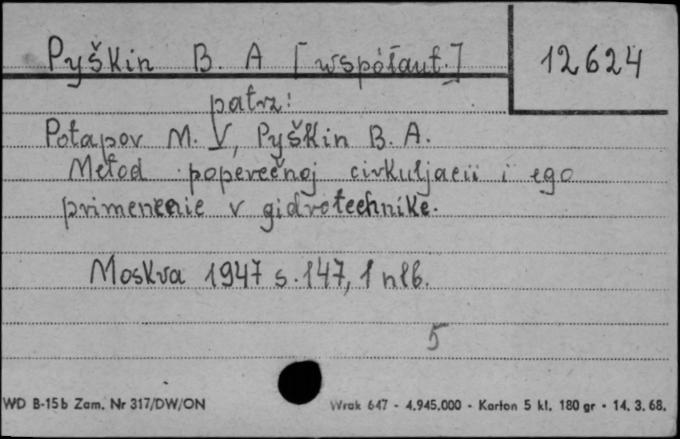 Pyškin B. A [współaut.]
12624
patrz:
Potapov M. V, Pyškin B. A.
Metod poperečnoj cirkuljacii i ego
primenenie v gidrotechnike.
Moskva 1947 s. 147, 1 nlb.
5
WD B-15b Zam. Nr 317/DW/ON
Wrak 647 - 4.945.000 - Karton 5 kl. 180 gr - 14. 3. 68.